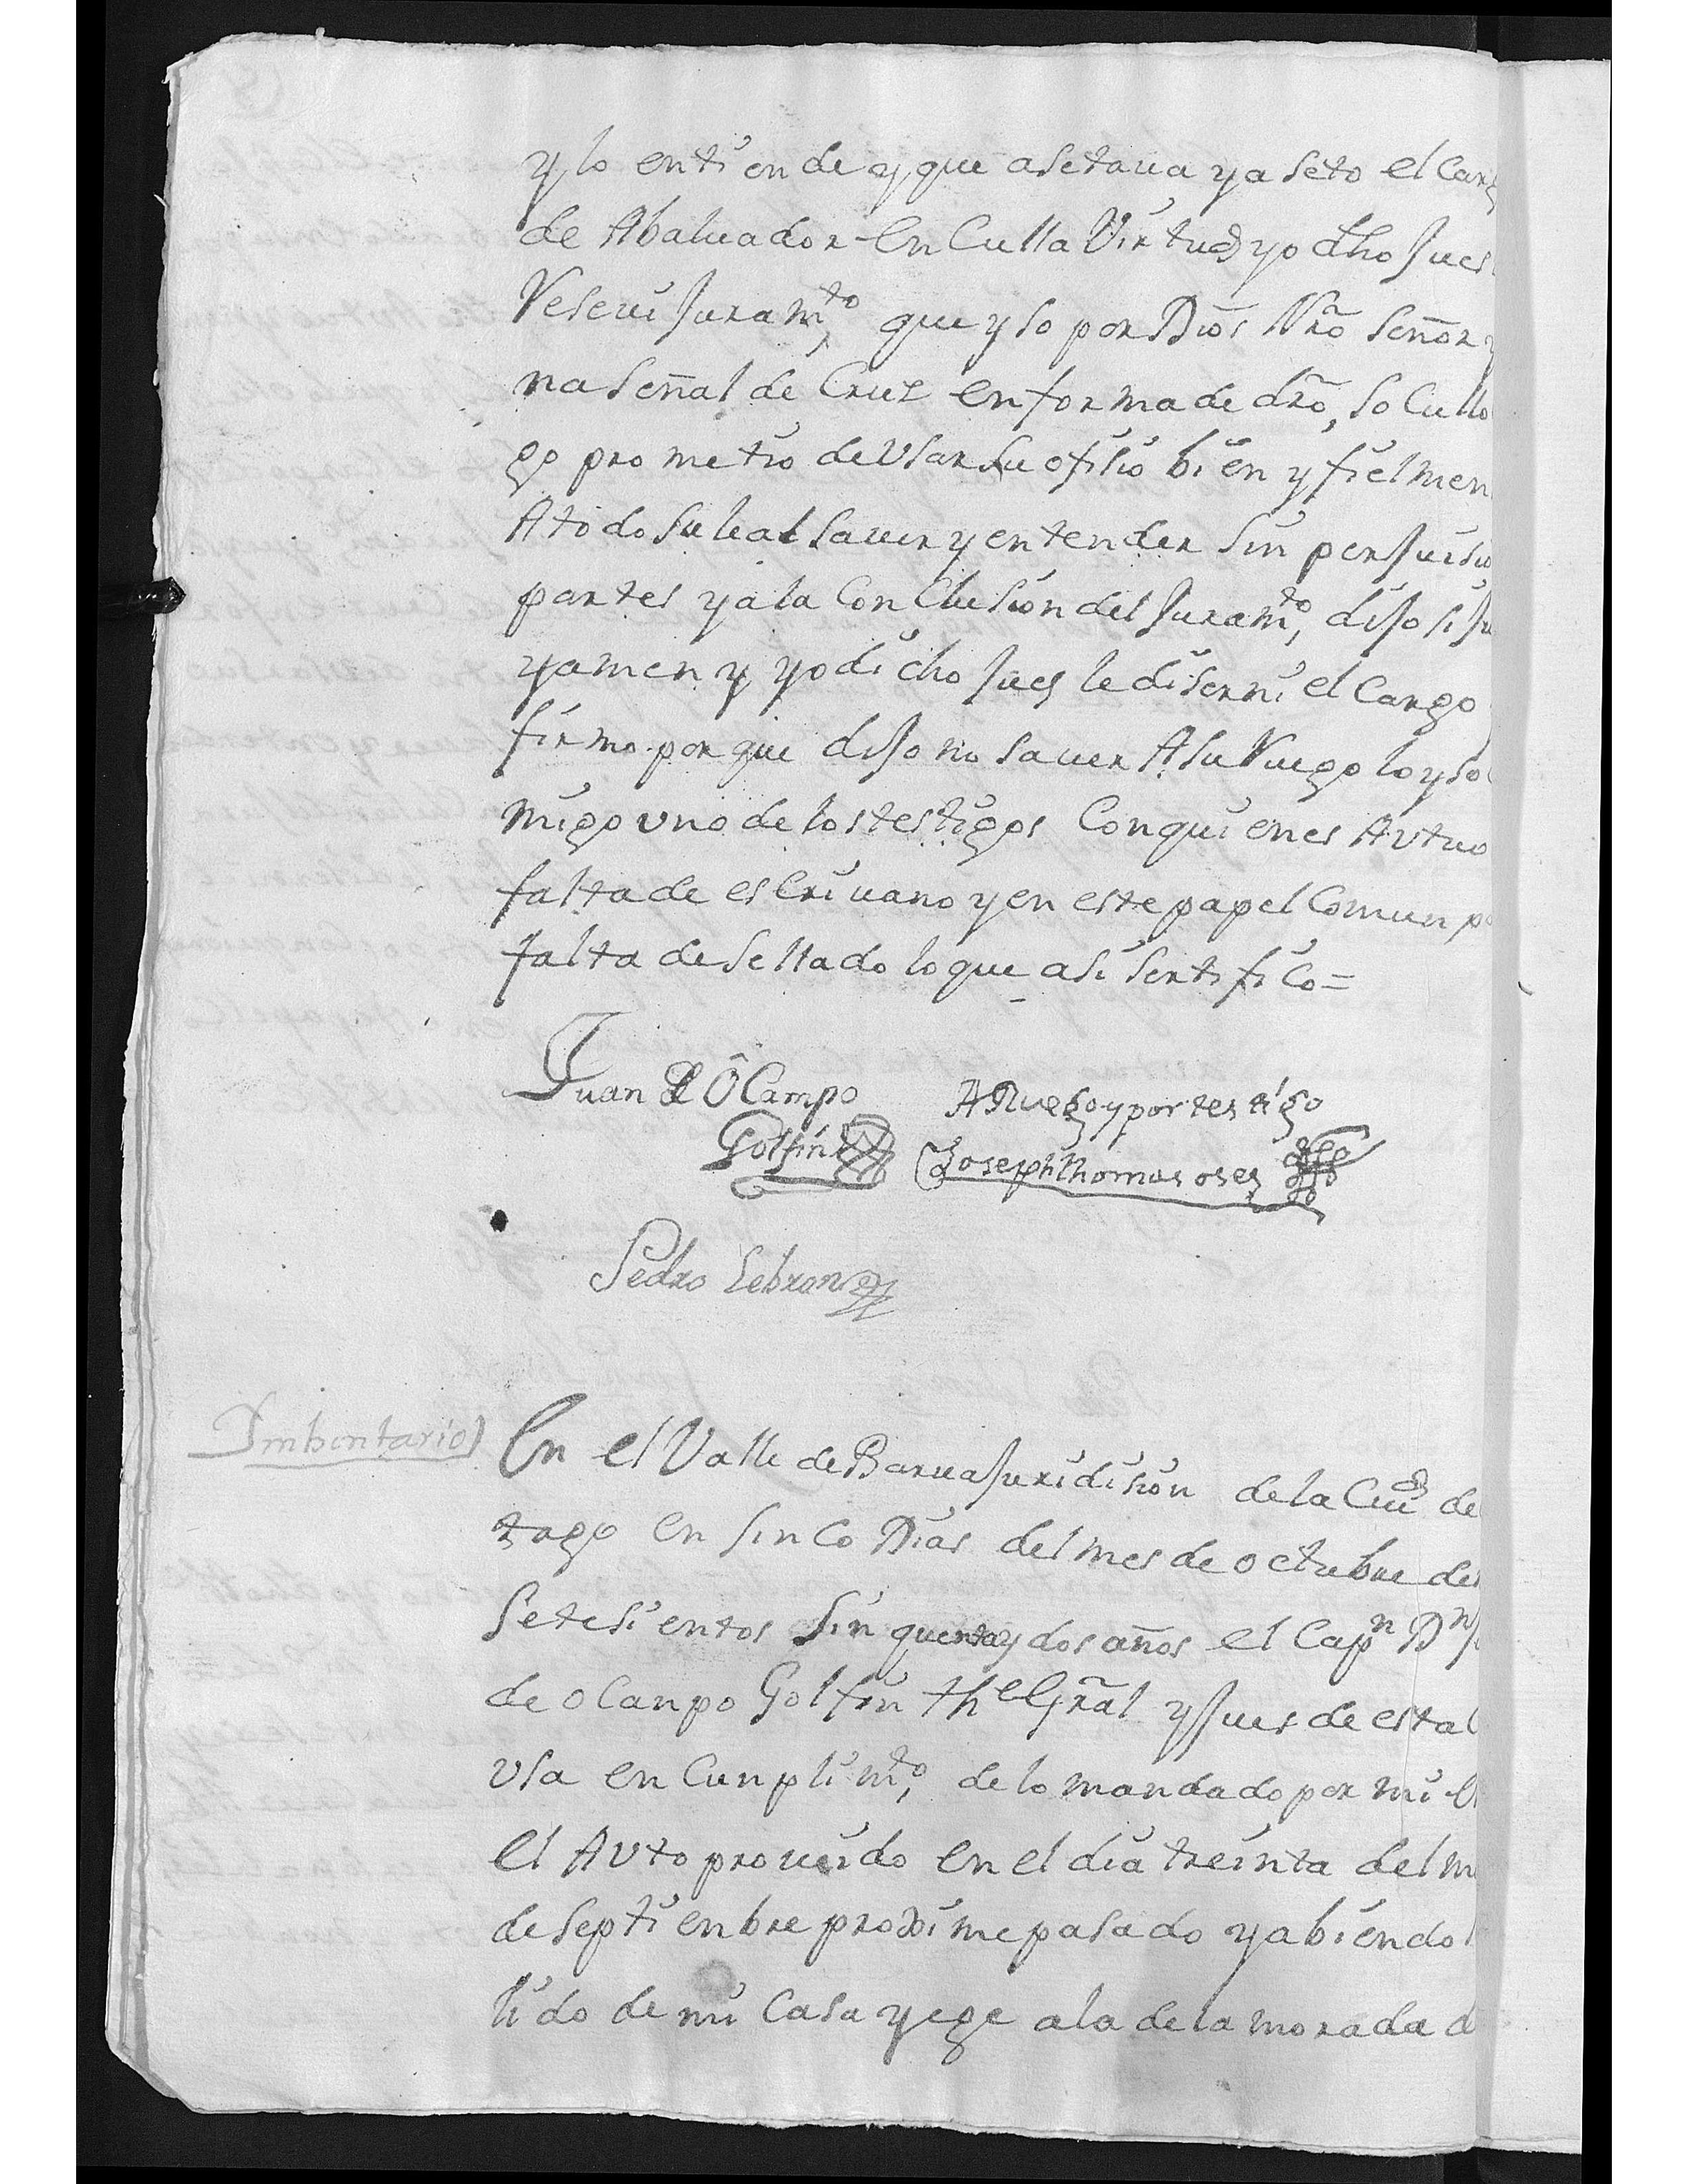 y lo entiende y que asetaua y aseto el Carg
de Abaluador en Culla Virtud yo dho Jues
Reseui Juramto, que yso por Dios Nrõ Señor y
na señal de Cruz en forma de drõ, so Cullo
go prometio de Usar su ofisio bien y fielmen
A todo su leal sauer y entender sin perJuisio
partes y a la Conclusion del Juramto, diJo si Ju
y amen y yo dicho Jues le diserni el Cargo
firmo porque diJo no sauer A su Ruego lo yso
migo uno de los testigos Con quienes Autuo
falta de escriuano y en este papel Comun po
falta de sellado lo que asi sertifico =
Juan de OCampo
Golfin
A Ruego y por testigo
Joseph thomas oses
Pedro Lebron
Imbentario
En el Valle de Barua Juridision de la Ciud de
tago en sinco Dias del mes de octubre de
setesientos sinquenta y dos años el Capn Dn
de oCanpo Golfin the Grãl y Jues de esta
usa en Cunplimto, de lo mandado por mi e
el Auto proueido en el dia treinta del m
de septienbre proximepasado y abiendo
lido de mi Casa yege a la de la morada d